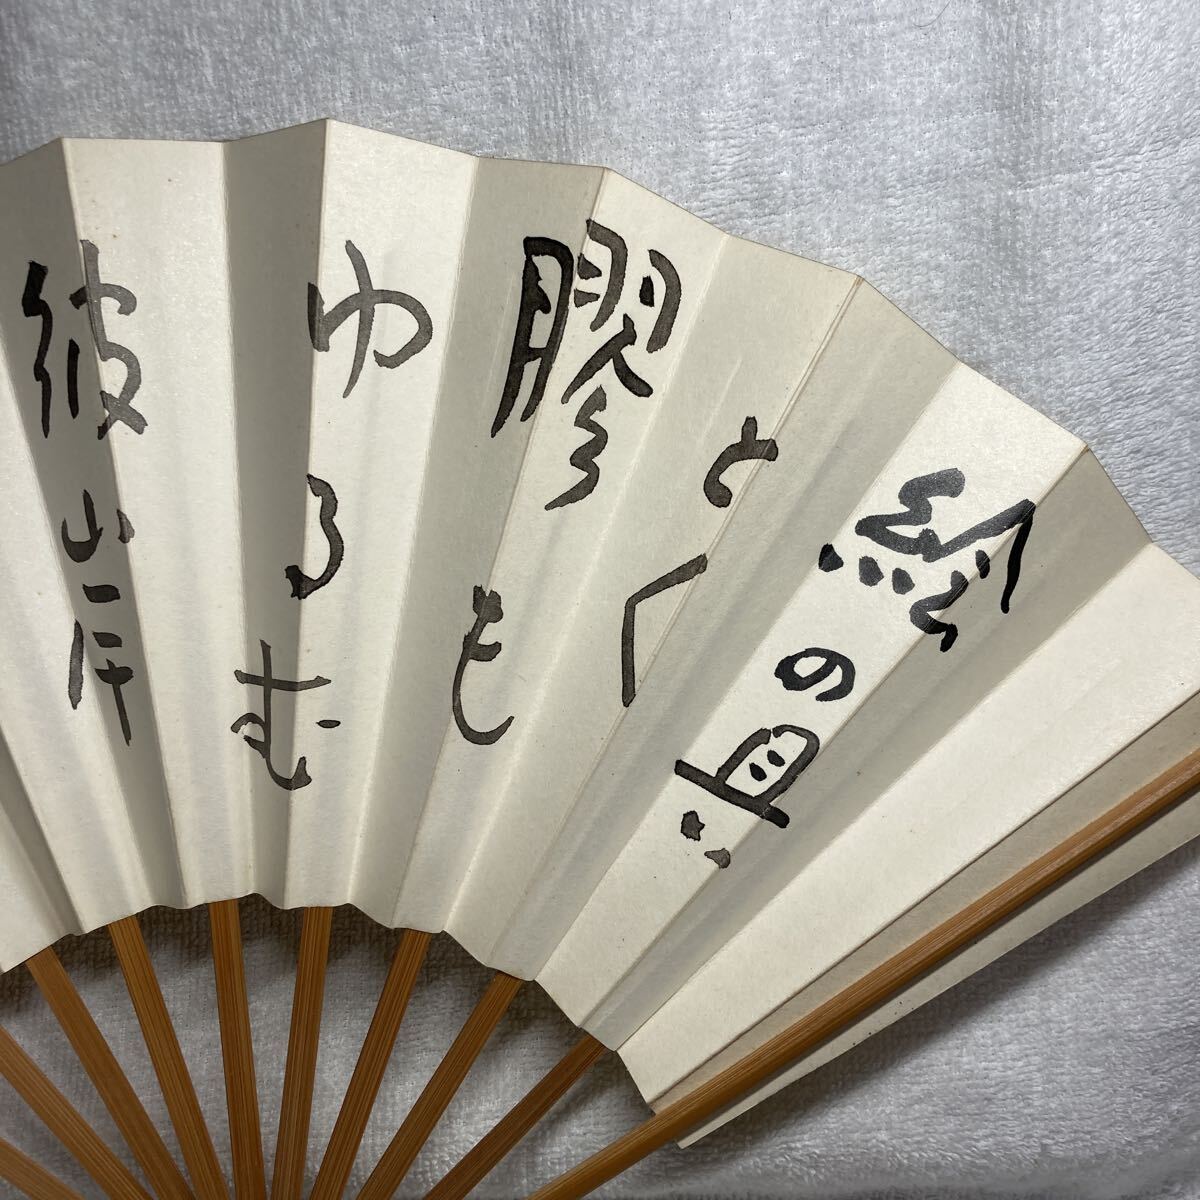 絵の具
とく
膠も
ゆるむ
彼岸